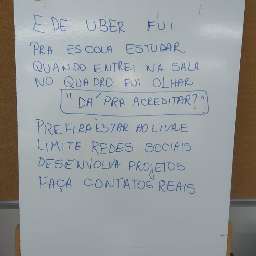 E DE UBER FUI
PRA ESCOLA ESTUDAR
QUANDO ENTREI NA SALA
NO QUADRO FUI OLHAR
"DÁ PRA ACREDITAR?"
PREFIRA ESTAR AO LIVRE
LIMITE REDES SOCIAIS
DESENVOLVA PROJETOS
FAÇA CONTATOS REAIS